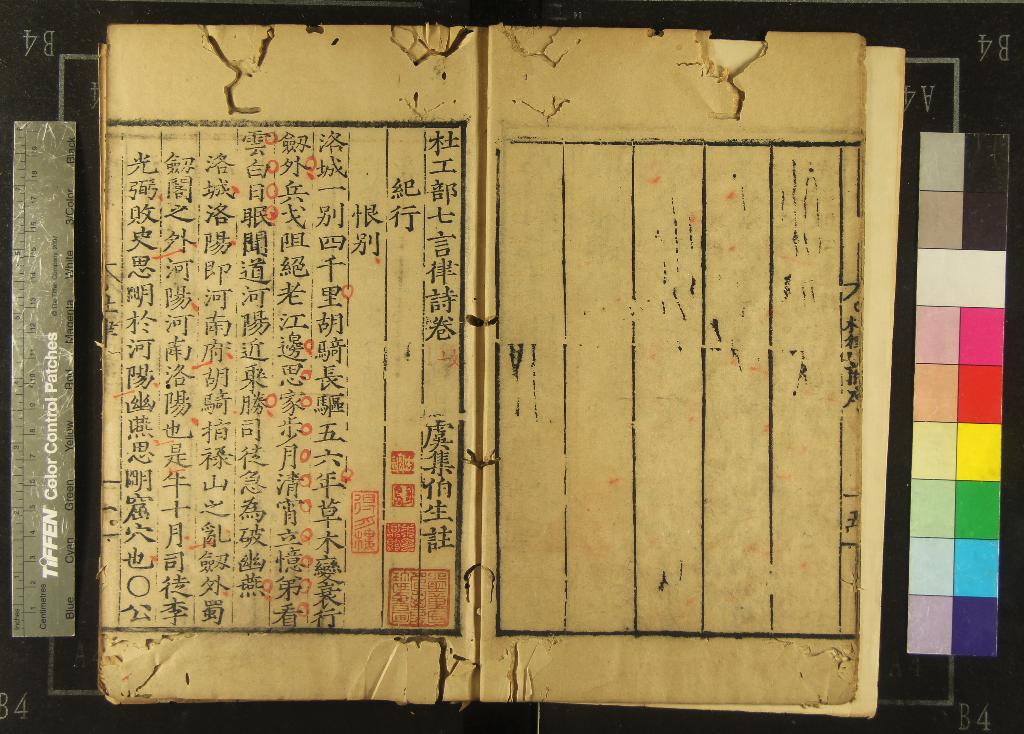 杜工部七言律詩卷
虞集伯生註
紀行
恨別
洛城一别四千里胡騎長驅五六年草木變衰行
劔外兵戈阻絕老江邊思家步月清宵立憶弟看
雲白日眠聞道河陽近乘勝司徒急為破幽燕
洛城洛陽即河南府胡騎指祿山之亂劔外蜀
劔閣之外河陽河南洛陽也是年十月司徒李
光弼敗史思明於河陽幽燕思明窟穴也〇公
TIFFEN Color Control Patches
Blue Cyan Green Yellow Red Magenta White 3/Color Black
Inches
Centimetres
B4
B4
B4
B4
A4
A4